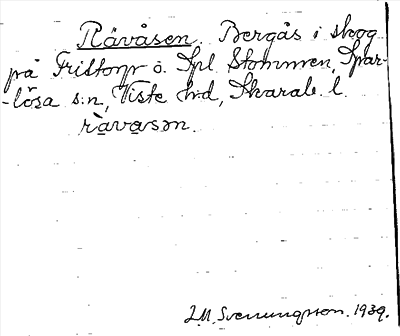 Råvåsen. Bergås i skog
på Friltorp o. Spl. Stommen, Spar-
-lösa s:n, Viste h:d, Skarab. l.
råvåsən.
J.M. Svenungsson. 1939.